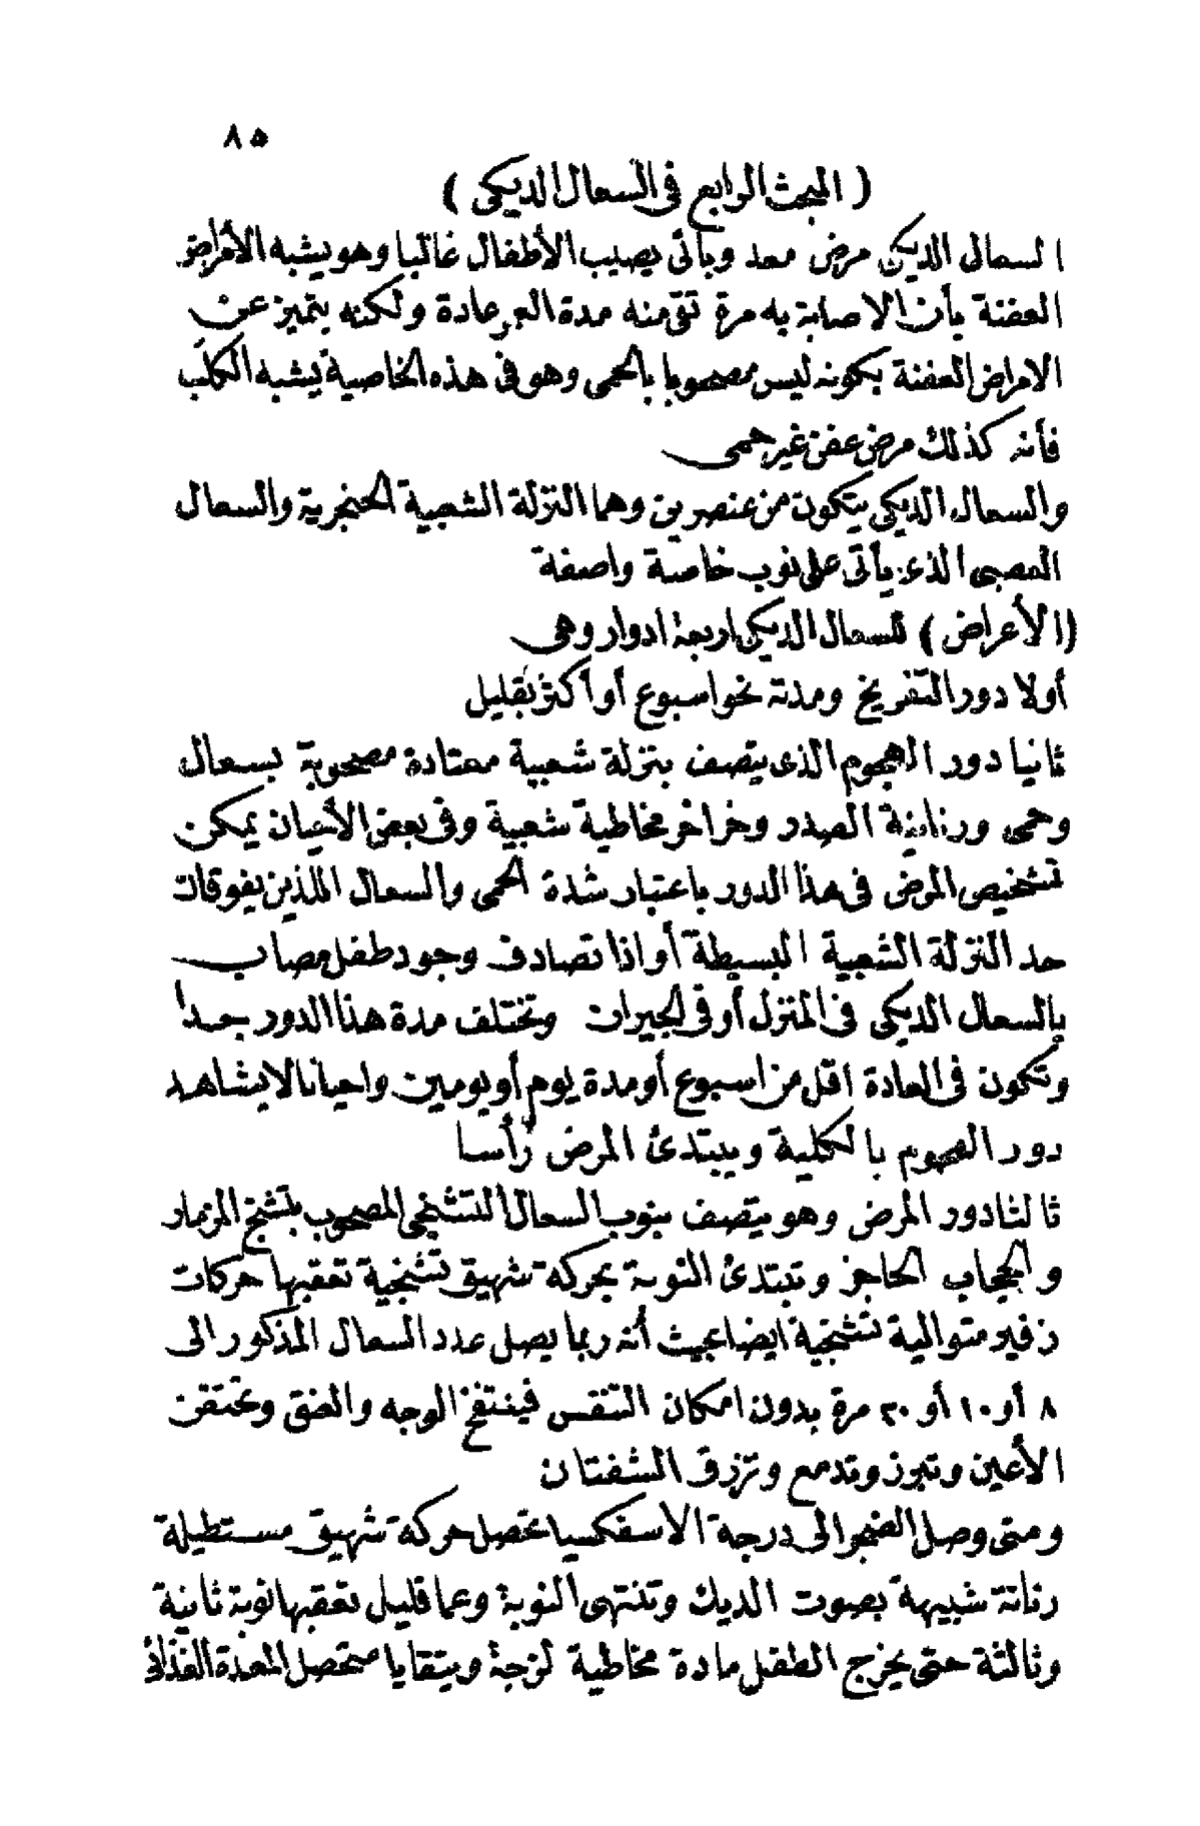 ٨٥
( المبحث الرابع فى السعال الديكى )
السعال الديكى مرض معد وبائى يصيب الأطفال غالبا وهو يشبه الأمراض
العفنة بأن الاصابة به مرة تقى منه مدة العمر عادة ولكنه يتميز عن
الامراض العفنة بكونه ليس مصحوبا بالحمى وهو فى هذه الخاصية يشبه الكلَب
فأنه كذلك مرض عفن غير حمى
والسعال الديكى يتكون من عنصرين وهما النزلة الشعبية الحنجرية والسعال
العصبى الذى يأتى على نوب خاصة واصفة
(الأعراض) للسعال الديكى اربعة ادوار وهى
أولا دور التفريخ ومدته نحو اسبوع أو أكثر بقليل
ثانيا دور الهجوم الذى يتصف بنزلة شعبية معتادة مصحوبة بسعال
وحمى ورنانية الصدر وخراخر مخاطية شعبية وفى بعض الأحيان يمكن
تشخيص المرض فى هذا الدور باعتبار شدة الحمى والسعال اللذين يفوقان
حد النزلة الشعبية البسيطة أو اذا تصادف وجود طفل مصاب
بالسعال الديكى فى المنزل أو فى الجيران وتختلف مدة هذا الدور جدا
وتكون فى العادة اقل من اسبوع أو مدة يوم أو يومين واحيانا لا يشاهد
دور الهجوم بالكلية ويبتدئ المرض رأسا
ثالثا دور المرض وهو يتصف بنوب السعال التشنجى المصحوب بتشنج المزمار
والحجاب الحاجز وتبتدئ النوبة بحركة شهيق تشنجية تعقبها حركات
زفير متوالية تشنجية ايضا بحيث أنه ربما يصل عدد السعال المذكور الى
٨ أو ١٠ أو ٢٠ مرة بدون امكان التنفس فينتفخ الوجه والعنق وتحتقن
الأعين وتبرز وتدمع وتزرق الشفتان
ومتى وصل الضجر الى درجة الاسفكسيا تحصل حركة شهيق مستطيلة
رنانة شبيهة بصوت الديك وتنتهى النوبة وعما قليل تعقبها نوبة ثانية
وثالثة حتى يخرج الطفل مادة مخاطية لزجة ويتقايا متحصل المعدة الغذائى